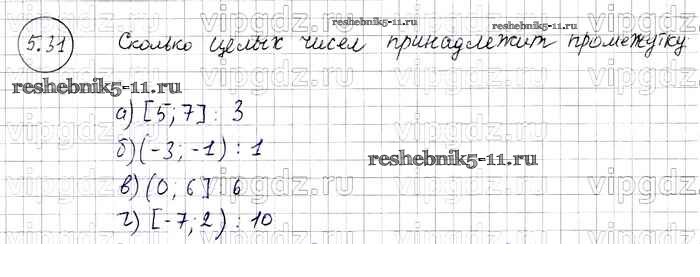 reshebnik5-11.ru reshebnik5-11.ru
5.31 Сколько целых чисел принадлежит промежутку
reshebnik5-11.ru
а) [5; 7] : 3
б) (-3; -1) : 1
reshebnik5-11.ru
в) (0, 6] 6
г) [-7; 2) : 10
vipgdz.ru